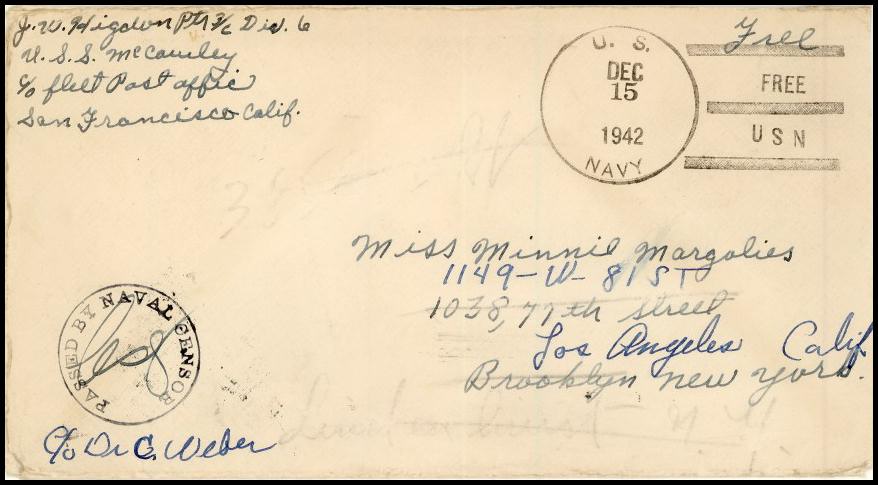 J. W. Higdon Ptr 3/c Div. 6
U. S. S. McCawley
c/o fleet Post offic
San Francisco Calif.
U. S.
DEC
15
1942
NAVY
Free
FREE
USN
Miss Minnie Margolies
1149-W-81 ST
1038, 77th Street
Los Angeles Calif
Brooklyn new york.
PASSED BY NAVAL CENSOR
c/o Dr C. Weber